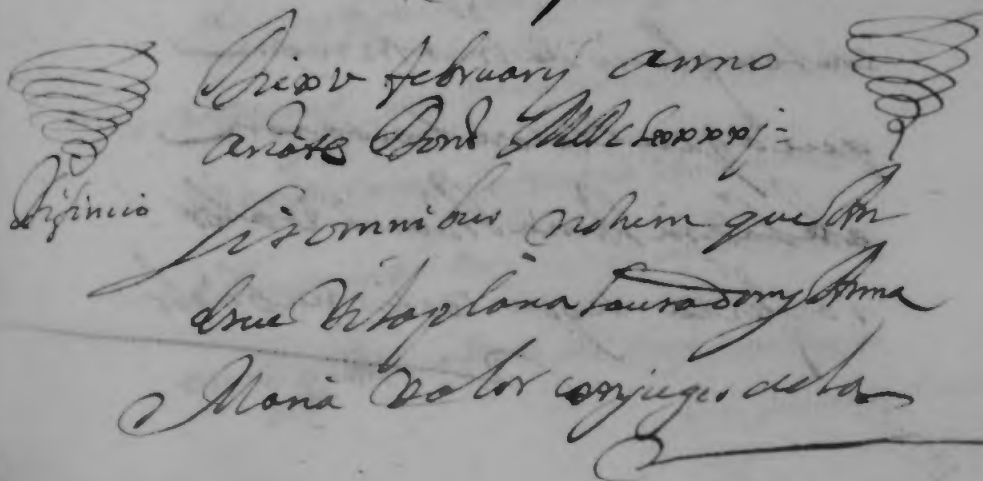 Die xv februarij anno
anate Domi MDCLxxxxj =
difinicio
Sit omnibus notum que An
dreu Vilaplana laurador y Anna
Maria Valor conjuges de la